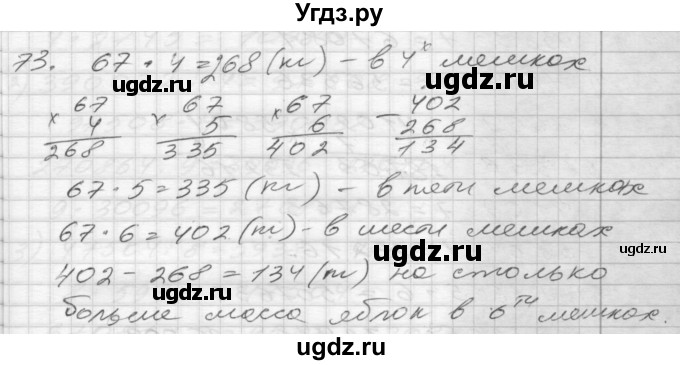 Угдз.ру
73. 67 · 4 = 268 (кг) – в 4х мешках
ugdz.ru ugdz.ru
67 67 67 402
× 4 × 5 × 6 – 268
268 335 402 134
67 · 5 = 335 (кг) – в пяти мешках
67 · 6 = 402 (кг) – в шести мешках
ugdz.ru
402 – 268 = 134 (кг) на столько
ugdz.ru
больше масса яблок в 6ти мешках.
ugdz.ru